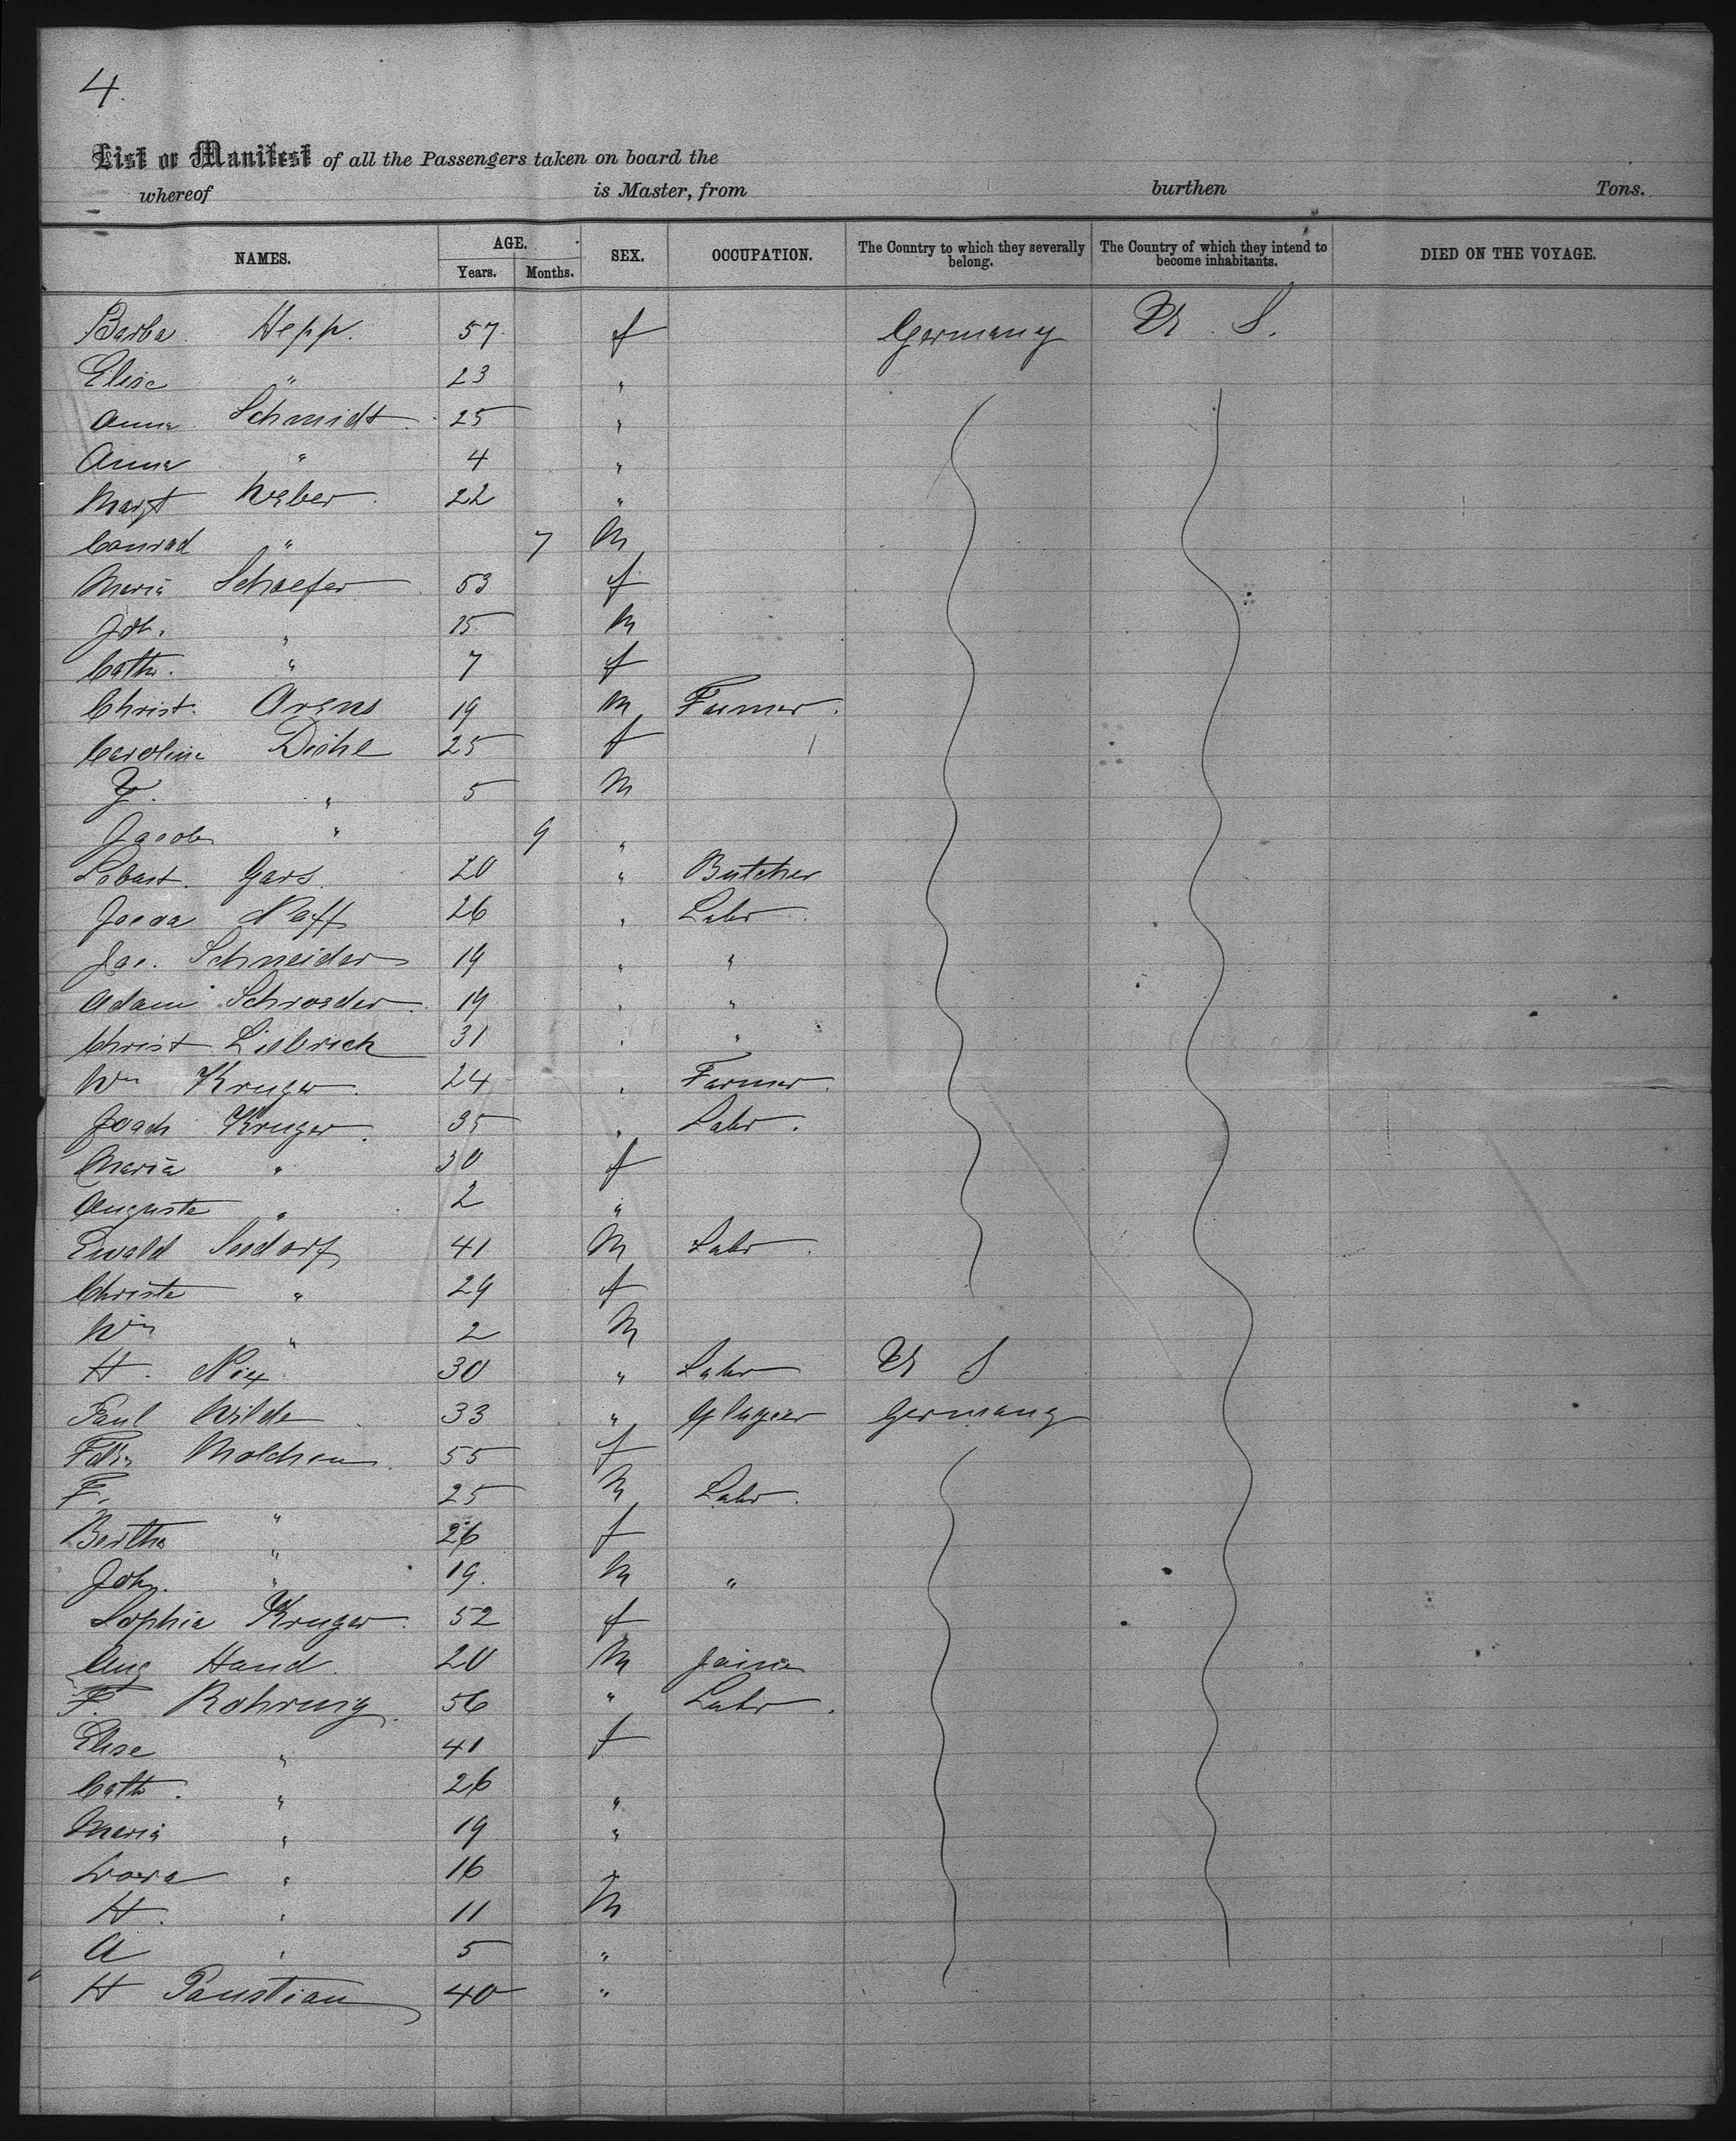 4.
List or Manifest of all the Passengers taken on board the
whereof is Master, from burthen Tons.
NAMES. AGE. Years. Months. SEX. OCCUPATION. The Country to which they severally belong. The Country of which they intend to become inhabitants. DIED ON THE VOYAGE.
Barba. Hepp. 57 f Germany U. S.
Elise " 23 "
Anna Schmidt 25 "
Anna " 4 "
Margt Weber 22 "
Conrad " 7 M
Maria Schaefer 53 f
Joh. " 15 M
Cath. " 7 f
Christ. Arens 19 M Farmer.
Caroline Diehl 25 f
" 5 M
Jacob " 9 "
Sebast. Gars 20 " Butcher
Naff 26 " Labr.
Jac. Schneider 19 " "
Adam Schroeder 19 " "
Christ Liebrich 31 " "
Wm Kruger. 24 " Farmer.
Joach Kruger. 35 " Labr.
Maria " 30 f
Auguste " 2 "
Ewald Seedorf 41 M Labr.
Christe " 29 f
Wm " 2 M
H. Nix 30 " Labr U S
Paul Wilde 33 " Germany
55 f
F. " 25 M Labr.
Bertha " 26 f
Joh. " 19. M "
Sophia Kruger. 52 f
Aug Hand. 20 M
F. Rohrwig. 56 " Labr.
Elise " 41 f
Cath. " 26 "
Maria " 19 "
Dora " 16 "
H. " 11 M
A " 5 "
H Paustian 40 "